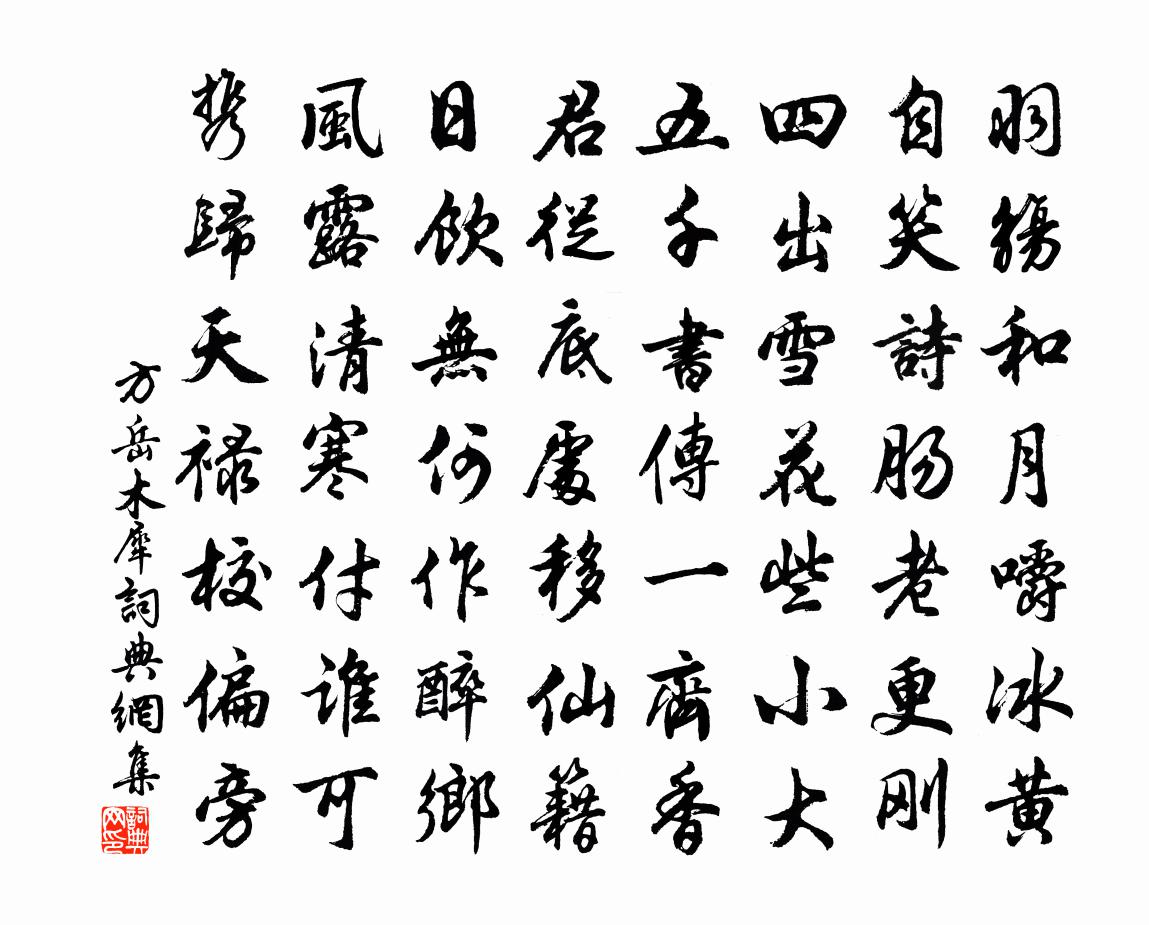 羽觴和月嚼冰黄
自笑詩肠老更刚
四出雪花些小大
五千書傳一齊香
君從底處移仙籍
日飲無何作醉鄉
風露清寒付誰可
携歸天禄校偏旁
方岳木犀詞典網集
詞典网印